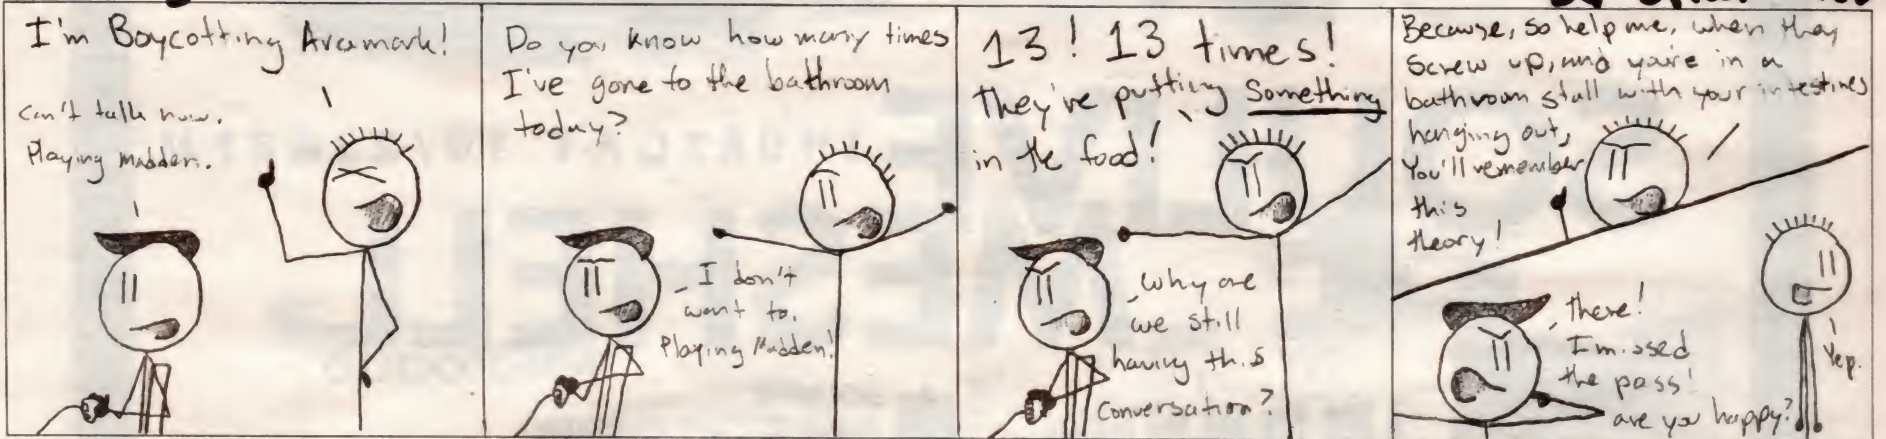 I'm Boycotting Aramark!
Can't talk now.
Playing Madden.
Do you know how many times
I've gone to the bathroom
today?
I don't
want to.
Playing Madden!
13! 13 times!
They're putting Something
in the food!
Why are
we still
having this
conversation?
Because, so help me, when they
screw up, and you're in a
bathroom stall with your intestines
hanging out,
You'll remember
this
theory!
There!
I missed
the pass!
are you happy?
Yep.